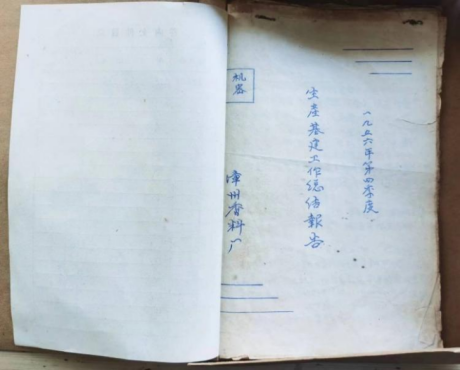 一九五六年第四季度
生産基建工作总结報告
机密
漳州香料厂